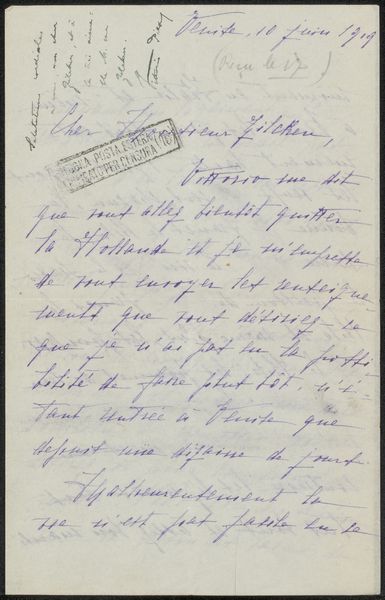 Venise, 10 juin 1919
(Reçu le 17)
Cher Monsieur Zilcken,
POSTA ESTERA
PER CENSURA
Vittorio me dit
que vous allez bientôt quitter
la Hollande et je m'empresse
de vous envoyer les renseigne-
ments que vous désiriez - ce
que je n'ai pas eu la possi
bilité de faire plus tôt, n'é-
tant rentrée à Venise que
depuis une dizaine de jours.
Malheureusement la
vie n'est pas facile en ce